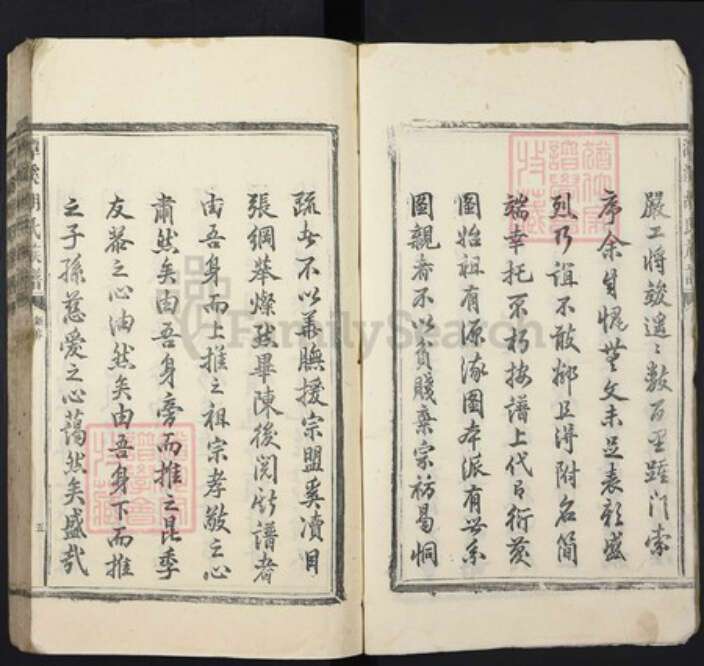 嚴工將竣遥〻數百里踵门索
序余自愧芜文未足表彰盛
烈乃誼不敢辭且得附名簡
端幸托不朽按譜上代有衍慶
圖始祖有源流圖本派有世系
圖親者不以貧賤棄宗祊曷恫
疏者不以華膴援宗盟奚瀆目
張綱舉燦然畢陳後閱斯譜者
由吾身而上推之祖宗孝敬之心
肅然矣由吾身旁而推之昆季
友恭之心油然矣由吾身下而推
之子孫慈愛之心藹然矣盛哉
胡氏族譜
五
FamilySearch